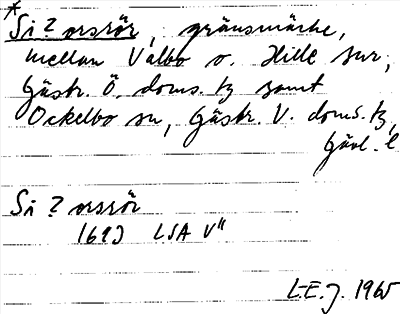 *Si?orsrör, gränsmärke,
mellan Valbo o. Hille snr,
Gästr. Ö. doms. tz samt
Ockelbo sn, Gästr. V. doms. tz,
Gävl. l
Si?orsrör
LSA V11
L.E.J. 1965